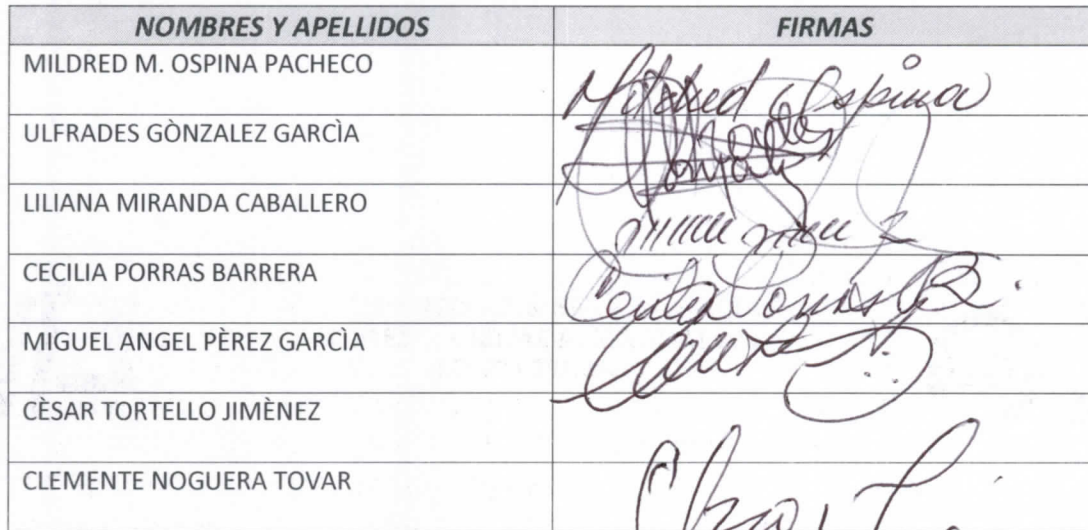 NOMBRES Y APELLIDOS FIRMAS
MILDRED M. OSPINA PACHECO Mildred Ospina
ULFRADES GÒNZALEZ GARCÌA
LILIANA MIRANDA CABALLERO
CECILIA PORRAS BARRERA Cecilia Porras B.
MIGUEL ANGEL PÈREZ GARCÌA
CÈSAR TORTELLO JIMÈNEZ
CLEMENTE NOGUERA TOVAR